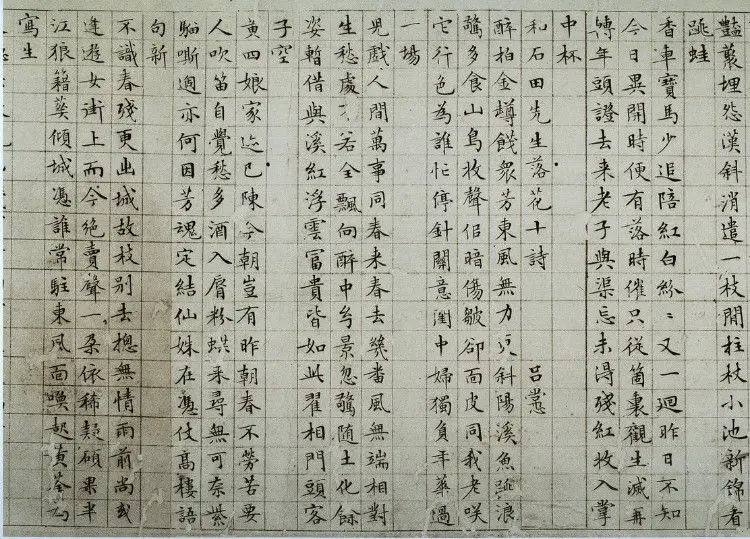 艷裏埋怨漢斜消遣一枝閒拄杖小池新錦看
跳蛙
香車寶馬少追陪紅白紛〻又一迴昨日不知
今日異開時便有落時催只從箇裏觀生滅再
轉年頭證去来老子與渠忘未得殘紅收入掌
中杯
和石田先生落花十詩 吕㦂
醉拍金樽餞衆芳東風無力更斜陽溪魚趂浪
驚多食山鳥收聲但暗傷皺卻面皮同我老咲
它行色為誰忙停針關意閨中婦獨負年華過
一場
兒戲人間萬事同春来春去幾番風無端相對
生愁處若全飄向醉中兮景忽驚随土化餘
姿暫借與溪紅浮雲富貴皆如此翟相門頭客
子空
黄四娘家迹已陳今朝豈有昨朝春不勞苦要
人吹笛自覺愁多酒入脣粉蜨来尋無可奈紫
騮嘶過亦何因芳魂定結仙姝在慿仗高樓語
句新
不識春殘更出城故枝别去摠無情雨前尚或
逢遊女街上而今絶賣聲一朶依稀疑碩果半
江狼籍葬傾城憑誰常駐東風面喚起黄荃為
寫生